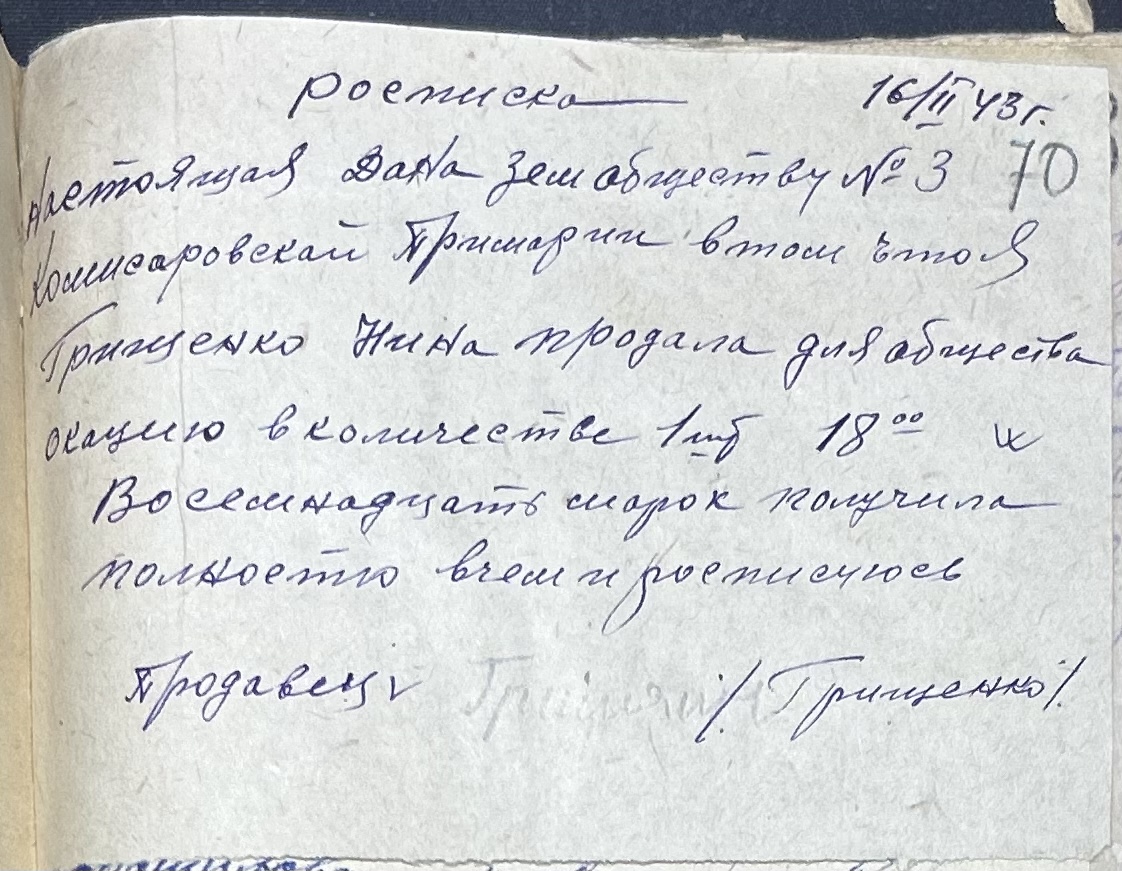 росписка 16/II 43 г.
Настоящая Дана Земобществу № 3 70
Комисаровской Примарии втом что я
Грищенко Нина продала для общества
окацию в количестве 1 шт 18 00
Восемнадцать марок получила
полностю вчем и росписуюсь
Продавец Грищенко /Грищенко/